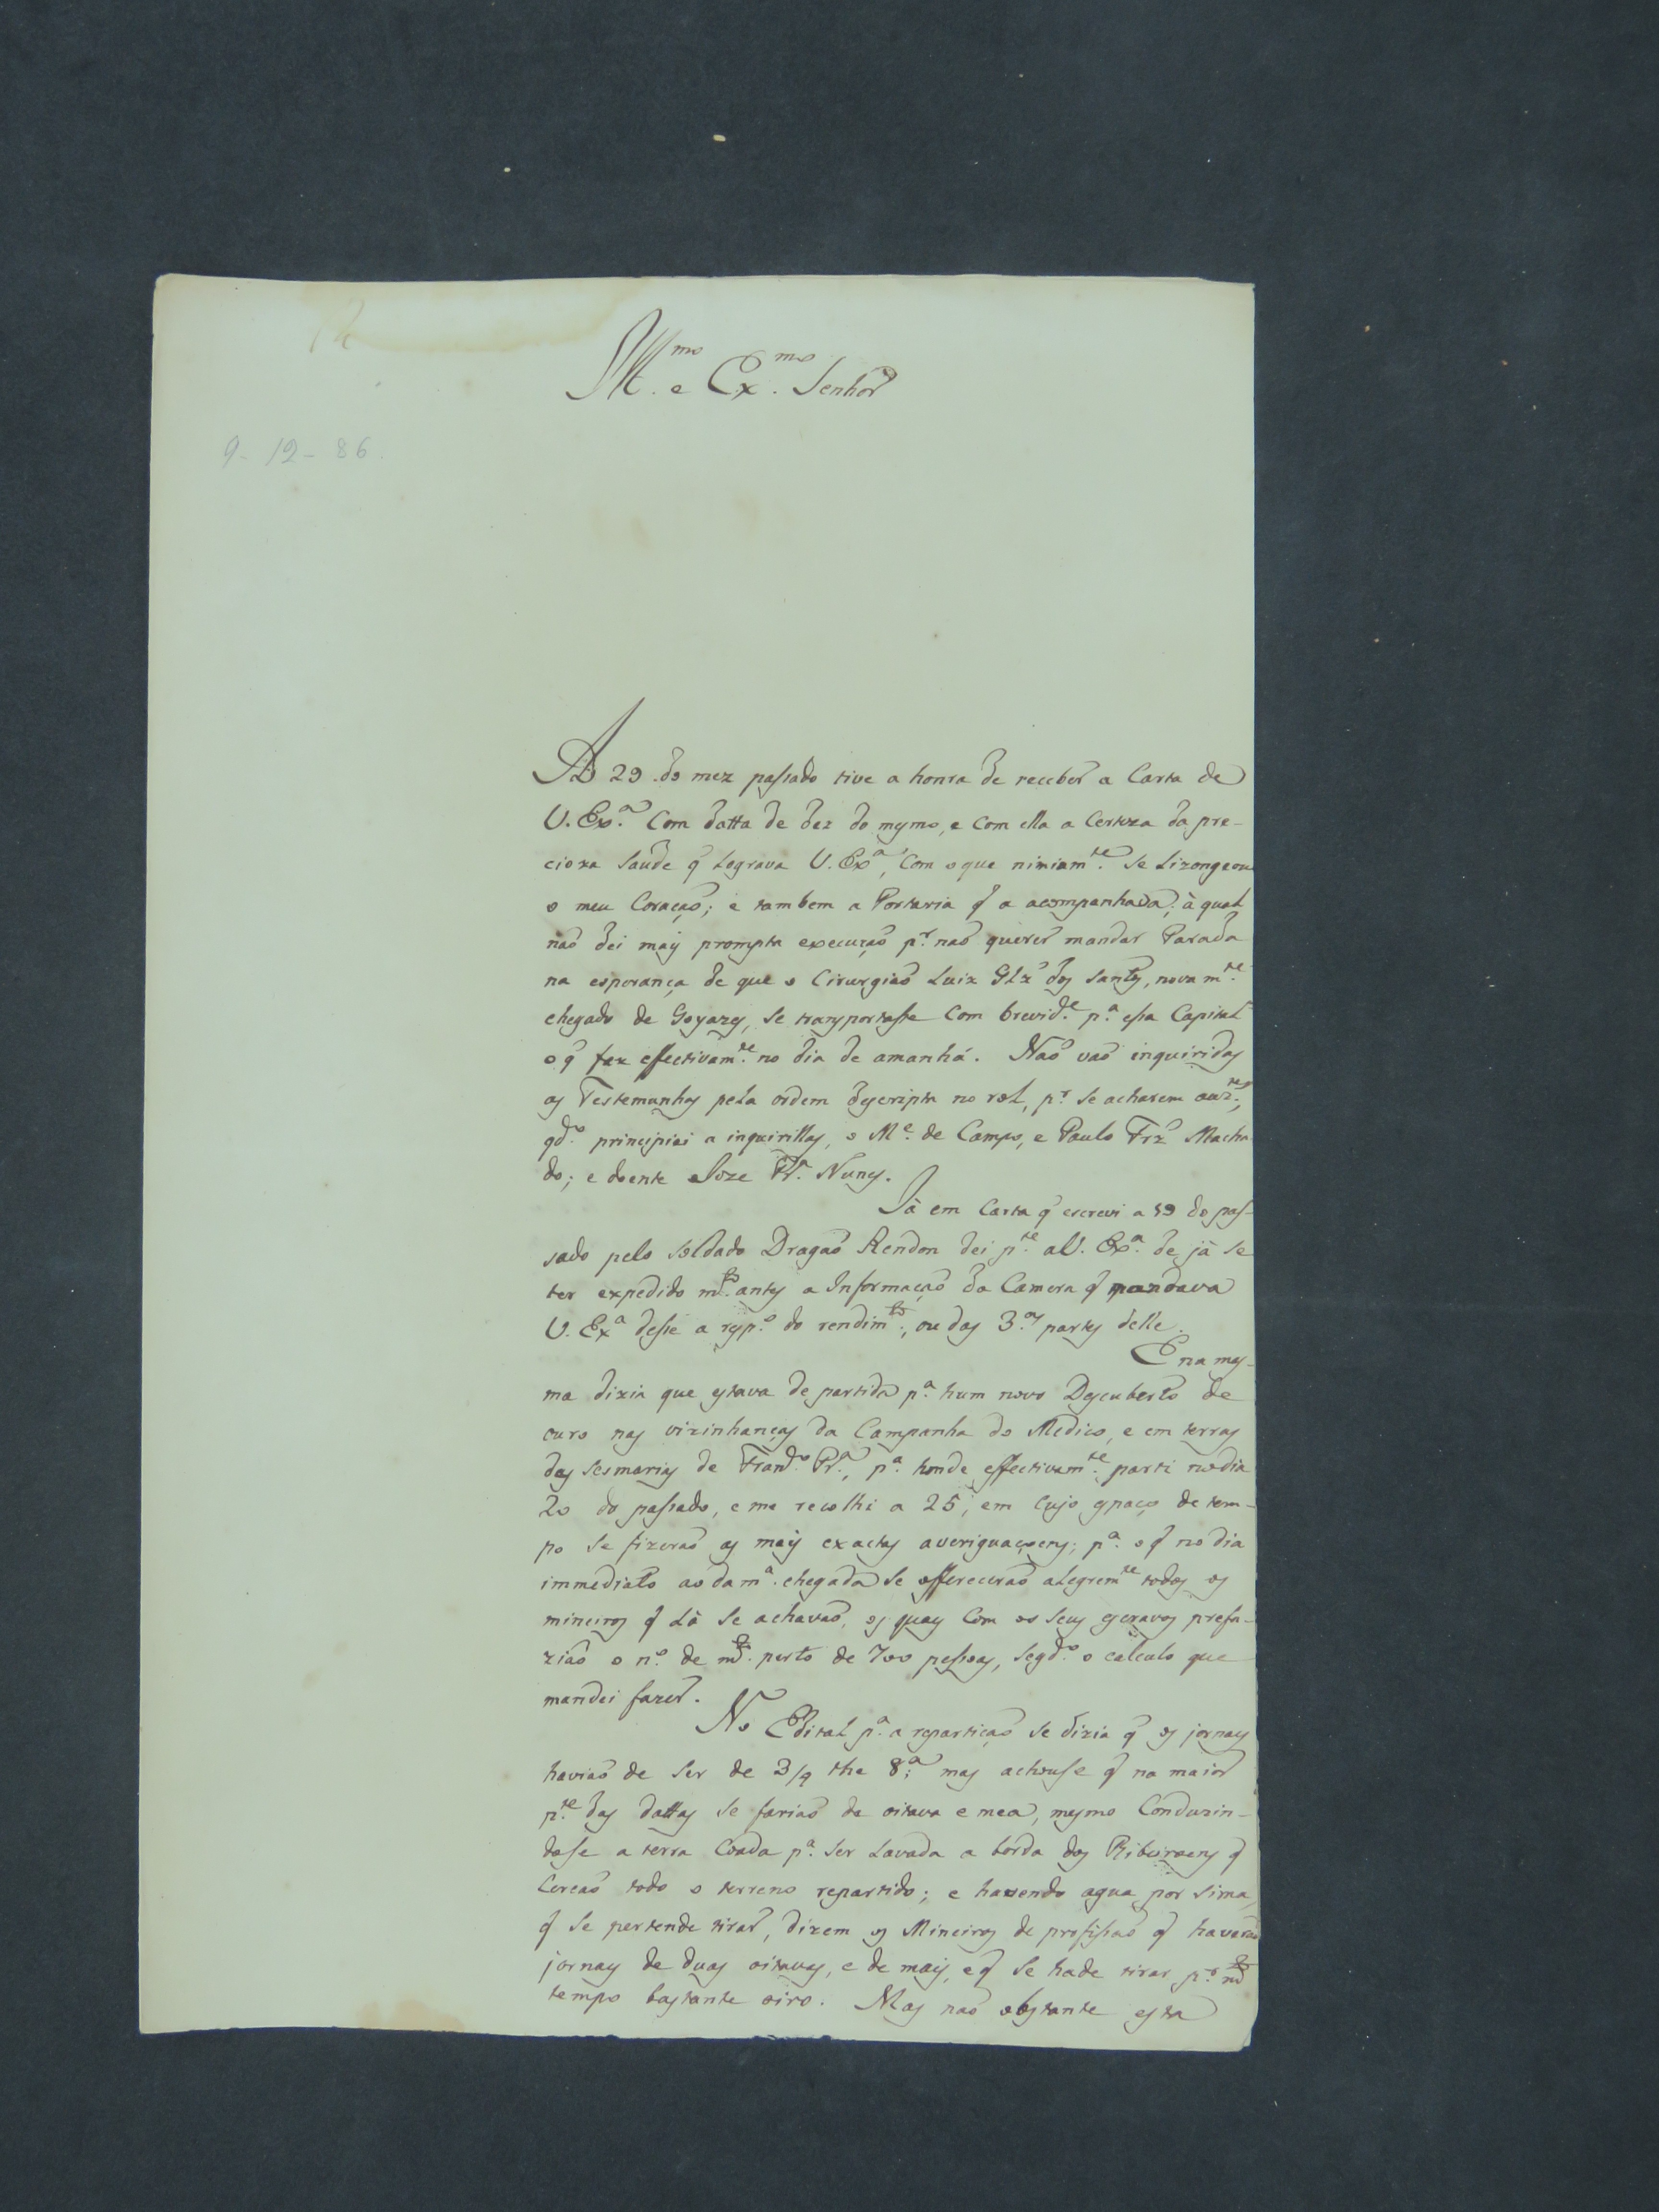 Ill.mo e Ex.mo Senhor
9-12-86.
Aos 29 do mez passado tive a honra de receber a Carta de
V. Ex.a Com datta de dez do mesmo, e com ella a Certeza da pre-
cioza Saude q̃ Lograva V. Ex.a, Com o que nimiam.te Se Lizongeou
o meu Coração; e tambem a Portaria q̃ a acompanhava; à qual
não dei mais prompta execução p.r não querer mandar Parada
na esperança de que o Cirurgião Luiz Glz̃ dos Santos, novam.te
chegado de Goyazes, Se transportasse Com brevid.e p.a essa Capital
o q̃ fez effectivam.te no dia de amanhá. Não vão inquiridas
as Testemunhas pela ordem descripta no rol, p.r Se acharem auz.tes,
qd.o principiei a inquirillas, o M.e de Campo, e Paulo Frz̃ Macha-
do; e doente Joze Pr.a Nunes.
Já em Carta q̃ escrevi a 19 do pas-
sado pelo Soldado Dragão Rendon dei p.te a V. Ex.a de já Se
ter expedido m.to antes a Informação da Camera q̃ mandava
V. Ex.a desse a resp.o do rendim.to, ou das 3.as partes delle.
E na mes-
ma dizia que estava de partida p.a hum novo Descuberto de
ouro nas vizinhanças da Campanha do Medico, e em terras
das Sesmarias de Fran.do Pr.a, p.a honde effectivam.te parti no dia
20 do passado, e me recolhi a 25; em Cujo espaço de tem-
po Se fizerão as mais exactas averiguaçoens; p.a o q̃ no dia
immediato ao da m.a chegada Se offerecerão alegrem.te todos os
mineiros q̃ Lá Se achavão, os quaes Com os Seus escravos prefa-
zião o n.o de m.to perto de 700 pessoas, Segd.o o calculo que
mandei fazer.
No Edital p.a a repartição Se dizia q̃ os jornaes
havião de Ser de 3/4 the 8.a; mas achouse q̃ na maior
p.te das dattas Se farião de oitava e mea, mesmo Conduzin-
dose a terra Coada p.a Ser Lavada a borda dos Ribeiroens q̃
Cercão todo o terreno repartido; e havendo agua por Sima,
q̃ Se pertende tirar, dizem os Mineiros de profissão q̃ haverão
jornaes de duas oitavas, e de mais, e q̃ Se hade tirar p.r m.to
tempo bastante oiro. Mas não obstante esta